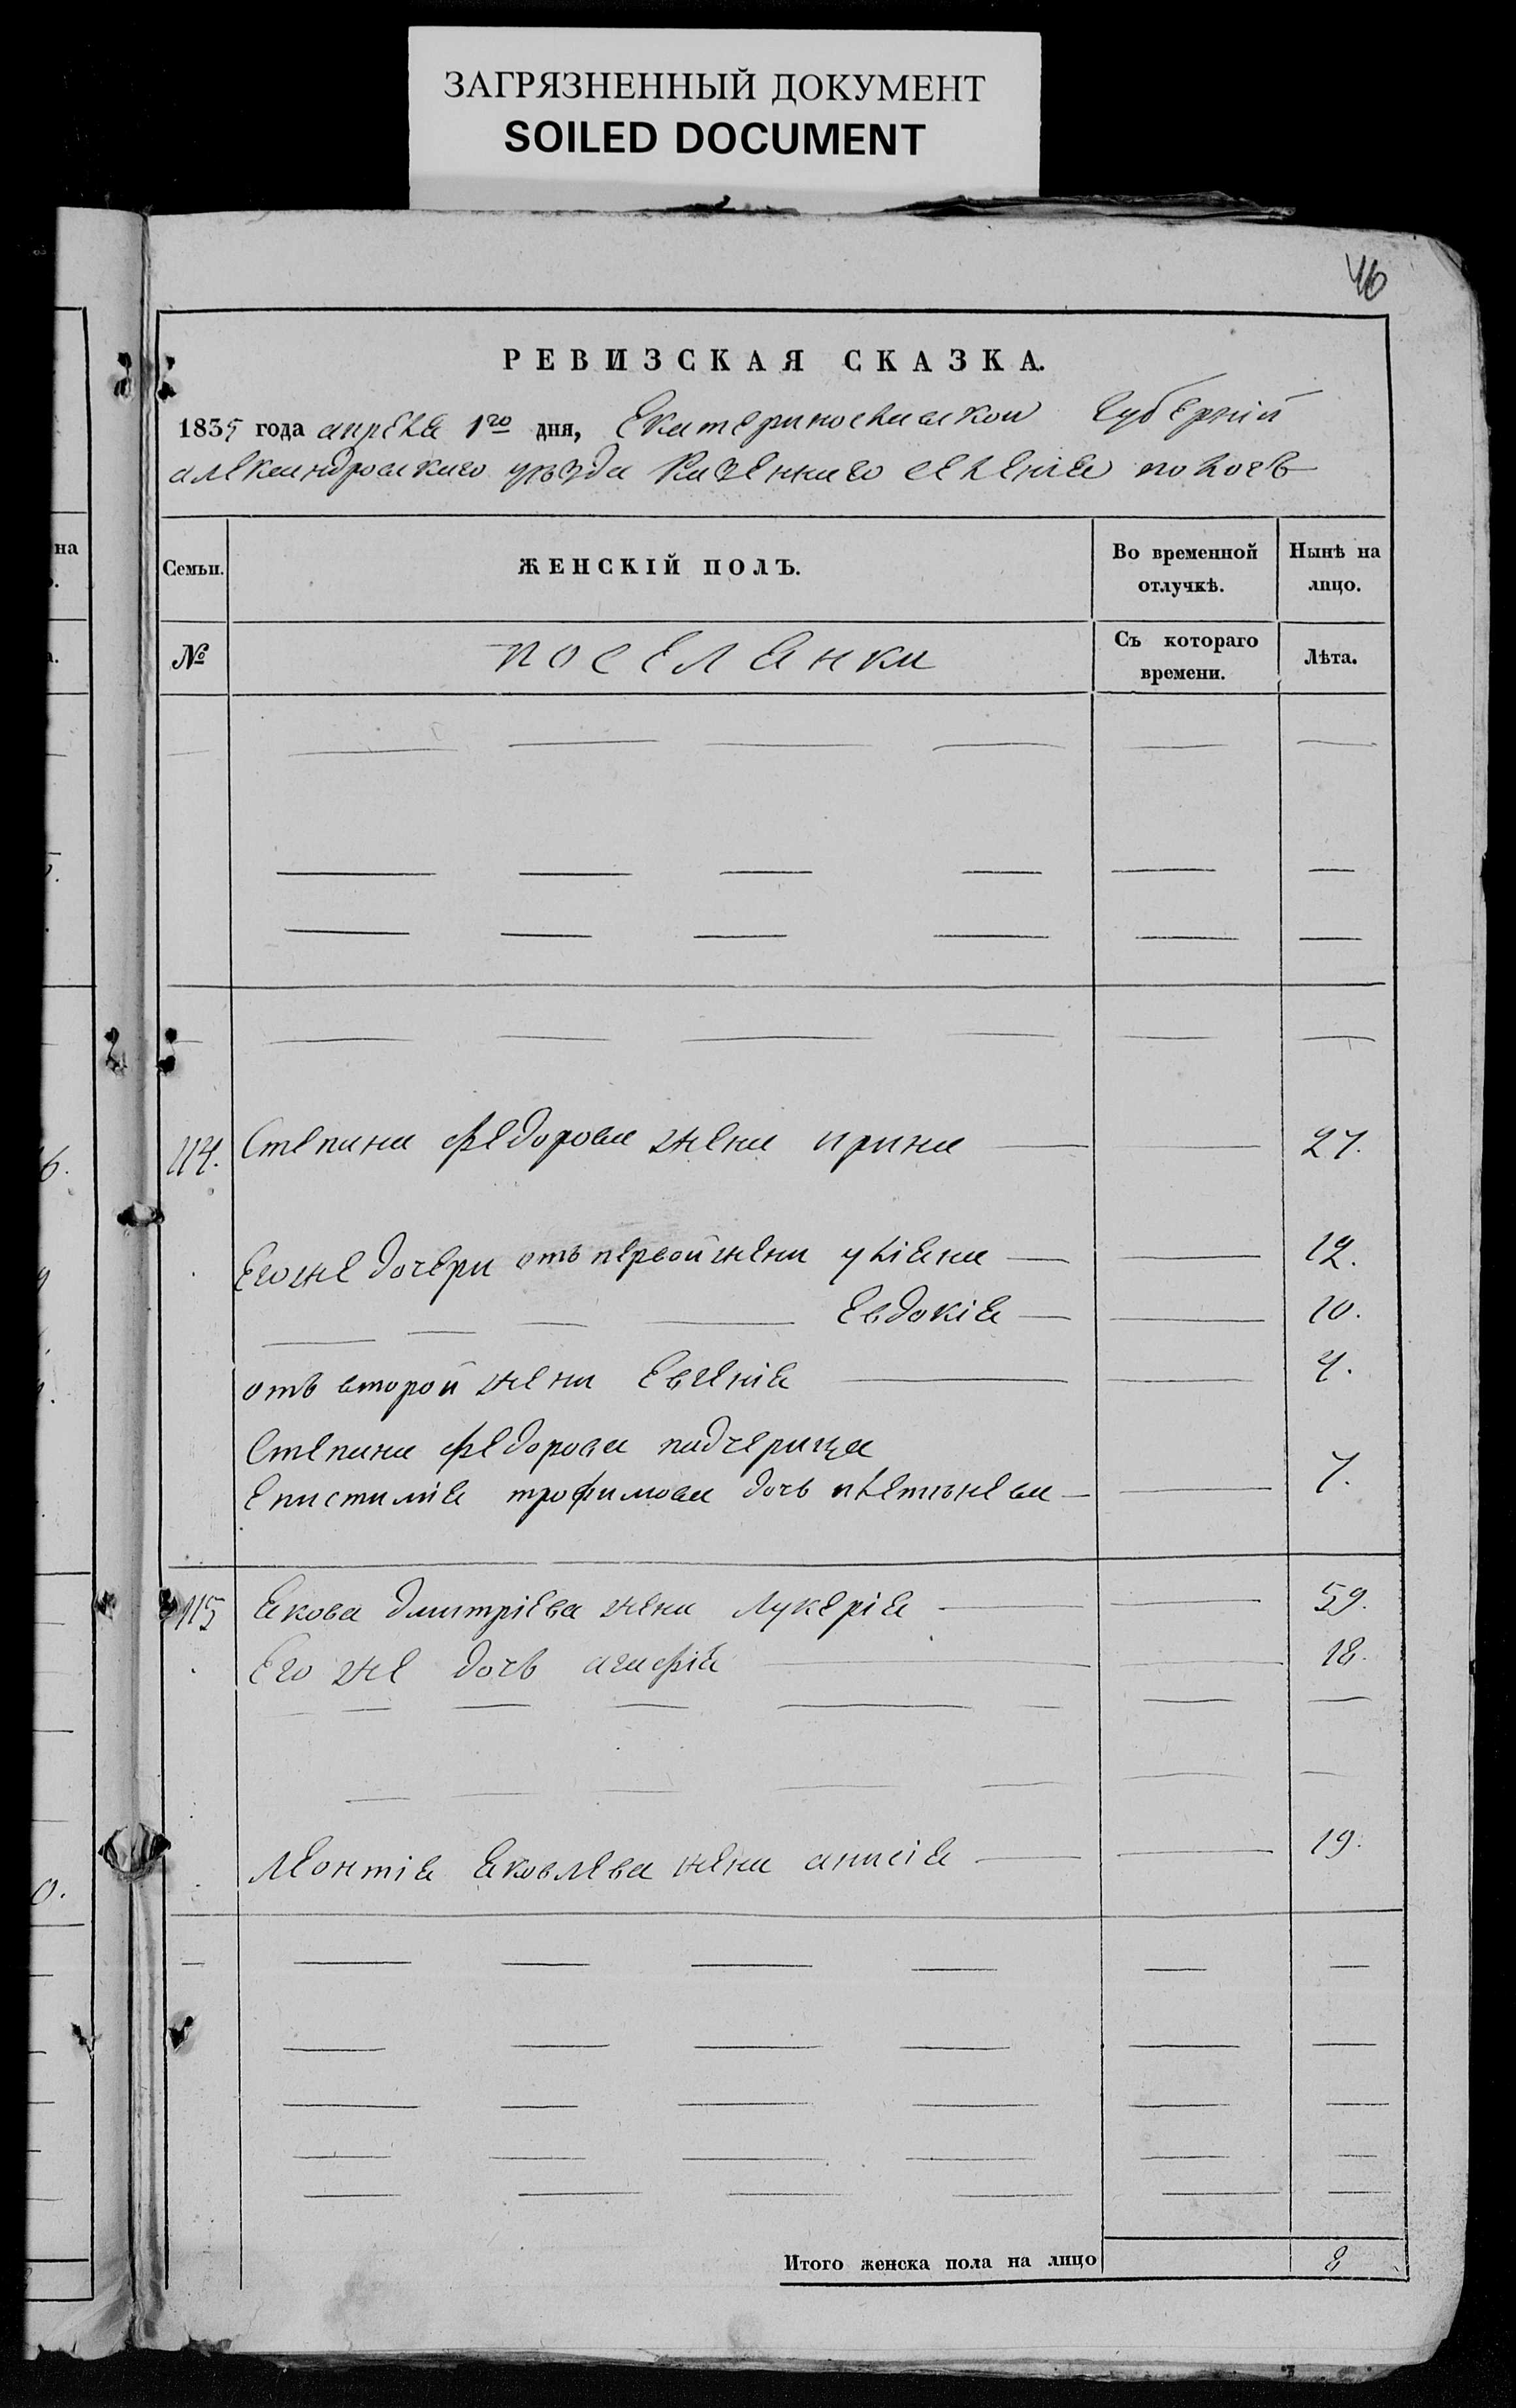 ЗАГРЯЗНЕННЫЙ ДОКУМЕНТ
SOILED DOCUMENT
46
РЕВИЗСКАЯ СКАЗКА.
1835 года апреля 1го дня, Екатеринославской Губернии
александровскаго уезда Казеннаго селения
на
Семьи.
ЖЕНСКІЙ ПОЛЪ.
Во временной отлучкѣ.
Нынѣ на лицо.
№
поселянки
Съ котораго времени.
Лѣта.
114. Степана Федорова жена ирина 27.
Егоже дочери отъ первой жени улiяна 12.
Евдокiя 10.
отъ второй жени Евгенiя 4.
Степана Федорова падчерица
епистимiя трофимова дочь 7.
115 Якова Дмитрiева жена Лукерiя 59.
Его же дочь агафiя 18.
Леонтiя Яковлева жена 19.
Итого женска пола на лицо 8